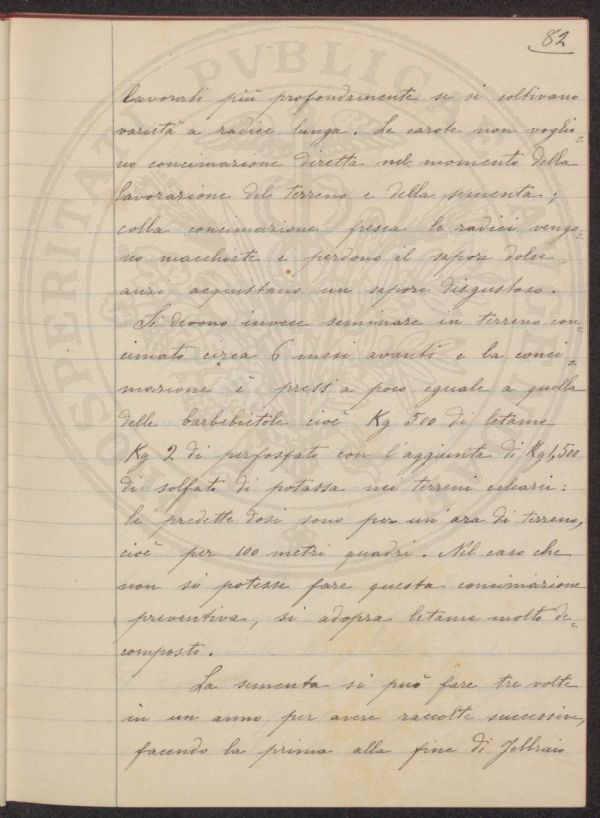 82
lavorati più profondamente se si coltivano
varietà a radice lunga. Le carote non voglio-
no concimazione diretta nel momento della
lavorazione del terreno e della sementa;
colla concimazione fresca le radici vengo-
no macchiate e perdono il sapore dolce,
anzi acquistano un sapore disgustoso.
Si devono invece seminare in terreno con-
cimato circa 6 mesi avanti e la conci-
mazione è press'a poco eguale a quella
delle barbebietole cioè Kg 500 di letame
Kg 2 di perfosfato con l'aggiunta di Kg 1,500
di solfato di potassa nei terreni calcarei:
le predette dosi sono per un'ara di terreno,
cioè per 100 metri quadri. Nel caso che
non si potesse fare questa concimazione
preventiva, si adopra letame molto de-
composto.
La sementa si può fare tre volte
in un anno per avere raccolte successive,
facendo la prima alla fine di Febbraio
PUBLICAE
PROSPERITATI